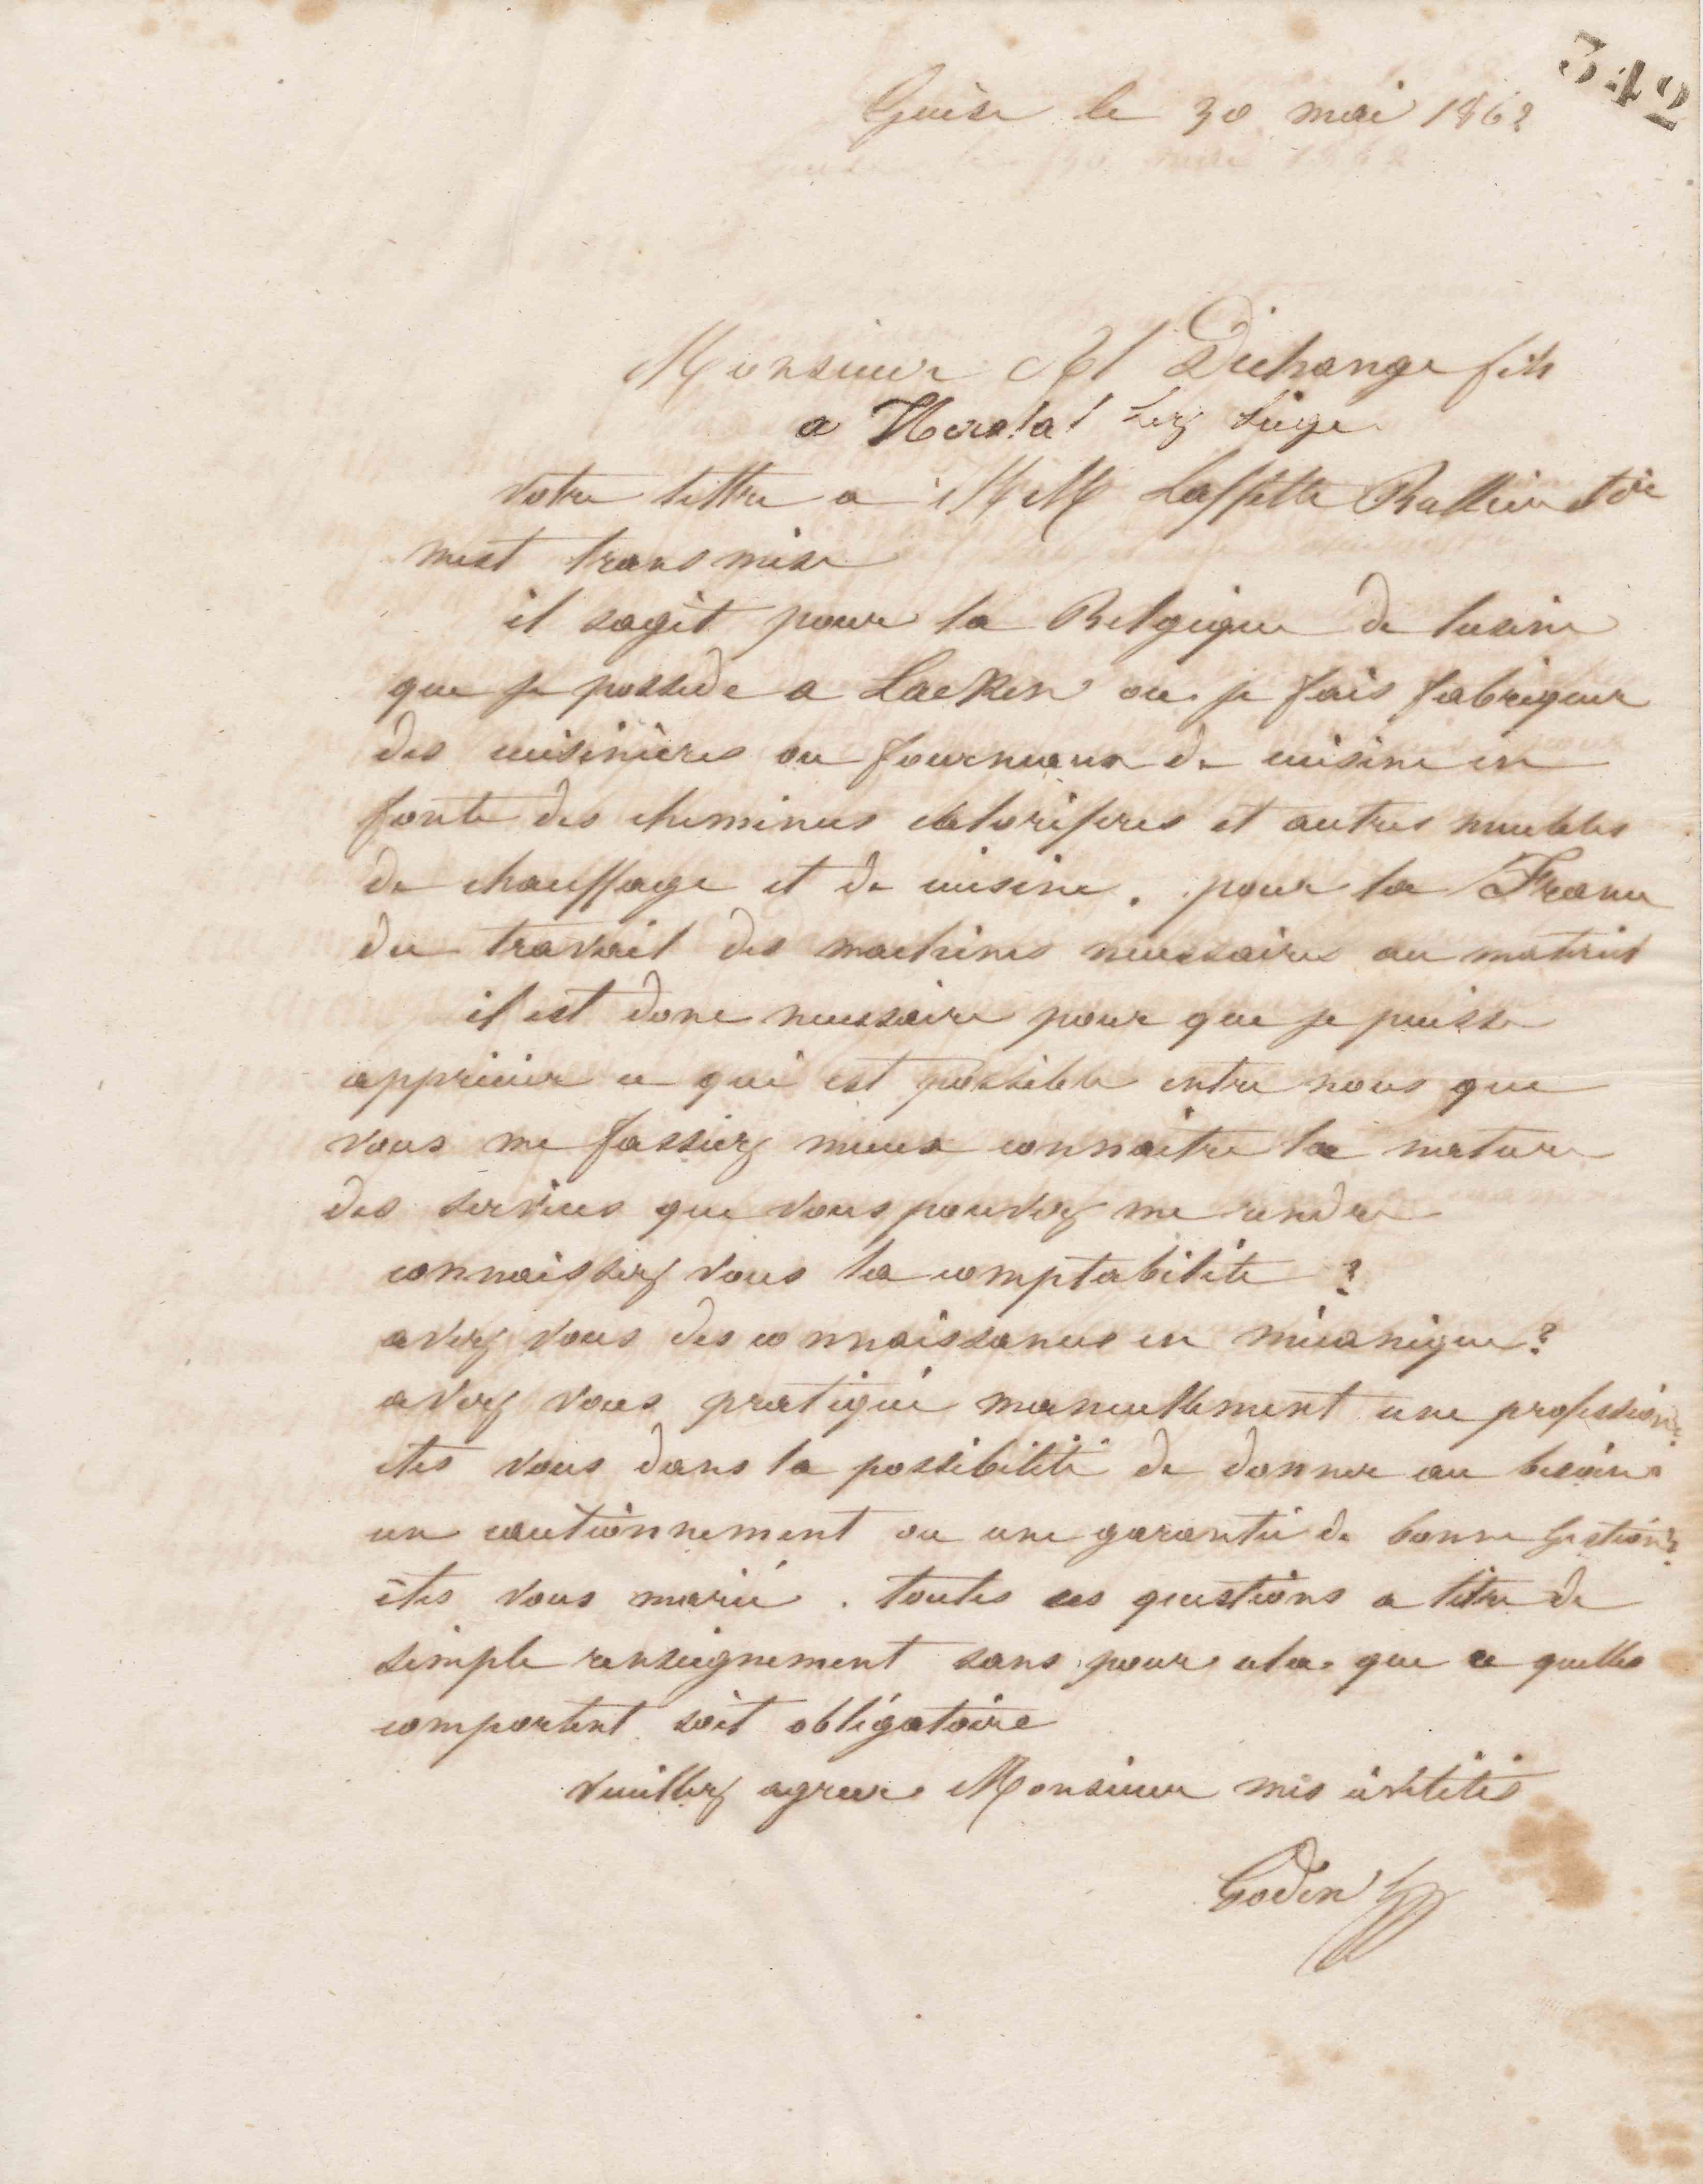 342
Guise le 30 mai 1862
Monsieur Al Dechange fils
a Herstal Lez Liège
votre lettre a MM Laffitte Bullier & Cie
mest transmise
il sagit pour la Belgique de lusine
que je possede a Laeken ou je fais fabriquer
des cuisinières ou fourneaux de cuisine en
fonte des cheminees caloriferes et autres meubles
de chauffage et de cuisine. pour la France
du travail des machines necessaires au materiel
il est donc necessaire pour que je puisse
apprécier ce qui est possible entre nous que
vous me fassiez mieux connaitre la nature
des services que vous pouvez me rendre
connaissez vous la comptabilité ?
avez vous des connaissances en mécanique ?
avez vous pratiqué manuellement une profession ?
etes vous dans la possibilité de donner au besoin
un cautionnement ou une garantie de bonne gestion ?
êtes vous marié . toutes ces questions a titre de
simple renseignement sans pour cela que ce quelles
comportent soit obligatoire
veuillez agreer Monsieur mes civilités
Godin